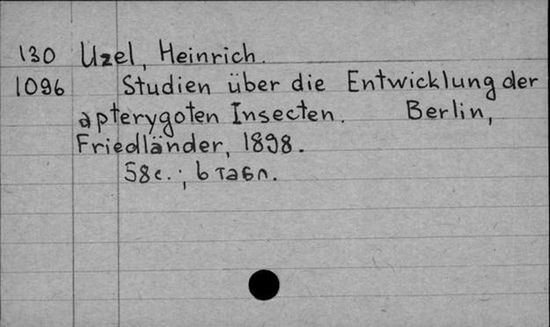 130 Uzel, Heinrich.
1096 Studien über die Entwicklung der
apterygoten Insecten. Berlin,
Friedländer, 1898.
58 с.; 6 табл.